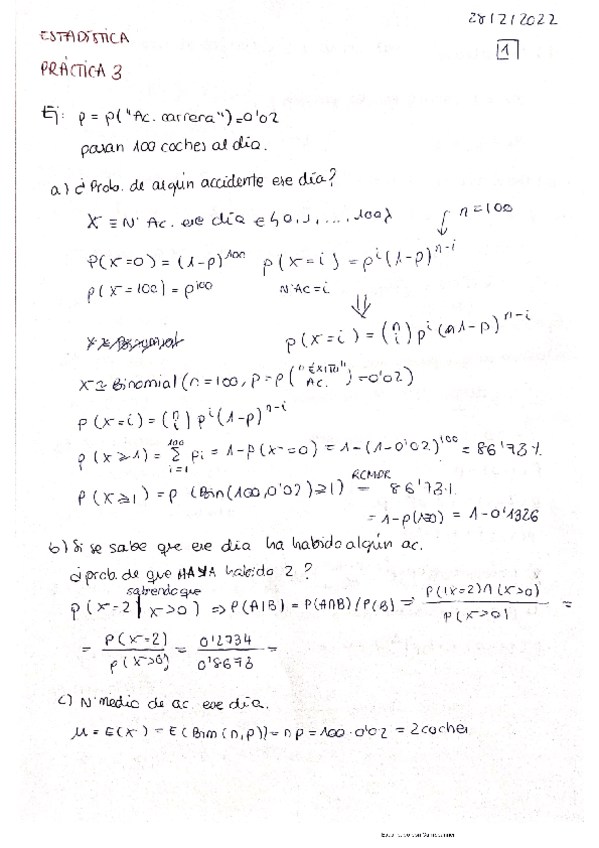 28/2/2022
ESTADÍSTICA
1
PRÁCTICA 3
Ej: p = p("Ac. carrera")=0'02
pasan 100 coches al día.
a) ¿Prob. de algún accidente ese día?
X ≡ Nº Ac. ese día ∈ {0,1,....,100}
n=100
P(X=0) = (1-p)^100 p(X=i) = p^i (1-p)^n-i
p(X=100) = p^100 Nº AC=i
⇓
p(X=i) = (n i) p^i (1-p)^n-i
X ≅ Binomial (n=100, p=p("ÉXITO" AC.) =0'02)
p(X=i) = (n i) p^i (1-p)^n-i
p(X≥1) = 100 Σ i=1 pi = 1-p(X=0) = 1-(1-0'02)^100 = 86'73%
p(X≥1) = p (Bin(100,0'02)≥1) RCMDR = 86'73%
= 1-p(X=0) = 1-0'1326
b) Si se sabe que ese día ha habido algún ac.
¿prob. de que HAYA habido 2?
sabiendo que
p(X=2 | X>0) ⇒ P(A|B) = P(A∩B)/P(B) = P((X=2)∩(X>0)) / p(X>0) =
= P(X=2) / p(X>0) = 0'2734 / 0'8673 =
c) Nº medio de ac. ese día.
μ = E(X) = E(Bin(n,p)) = np = 100·0'02 = 2 coches